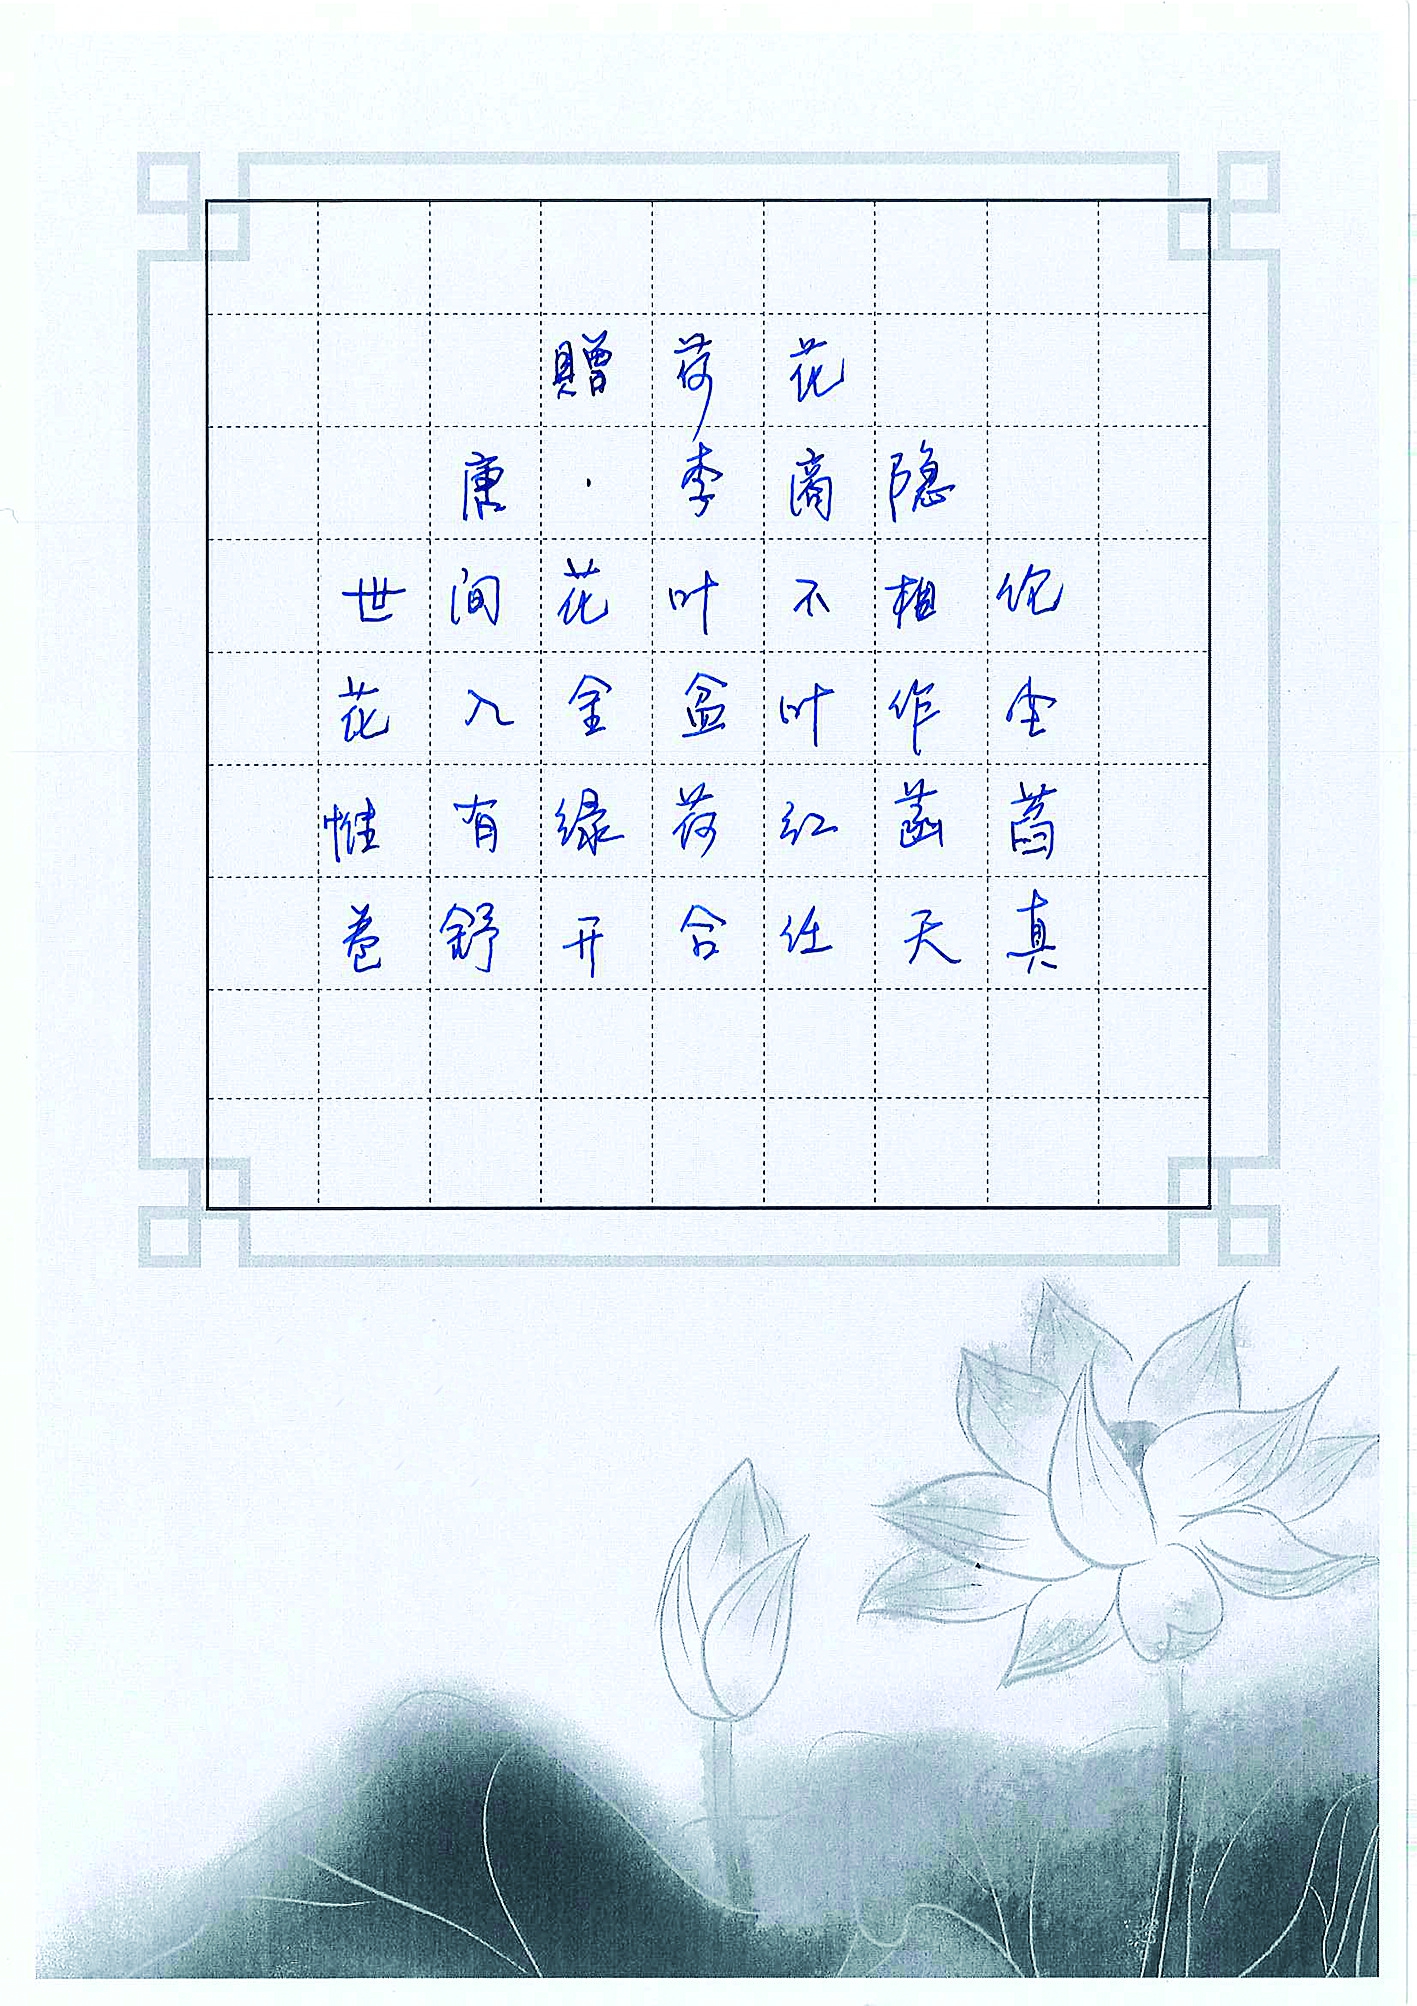 赠荷花
唐·李商隐
世间花叶不相伦
花入金盆叶作尘
惟有绿荷红菡萏
卷舒开合任天真